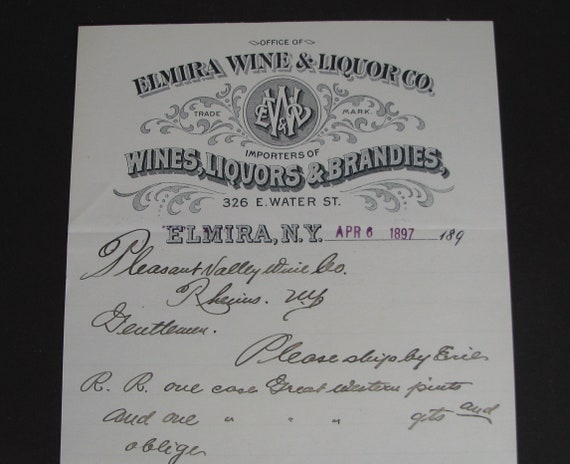 OFFICE OF
ELMIRA WINE & LIQUOR CO.
TRADE MARK.
IMPORTERS OF
WINES, LIQUORS & BRANDIES,
326 E. WATER ST.
ELMIRA, N.Y. APR 6 1897 189
Pleasant Valley Wine Co.
Rheims. NY
Gentlemen.
Please ship by Erie
R. R. one case Great Western pints
and one " " " qts and
oblige